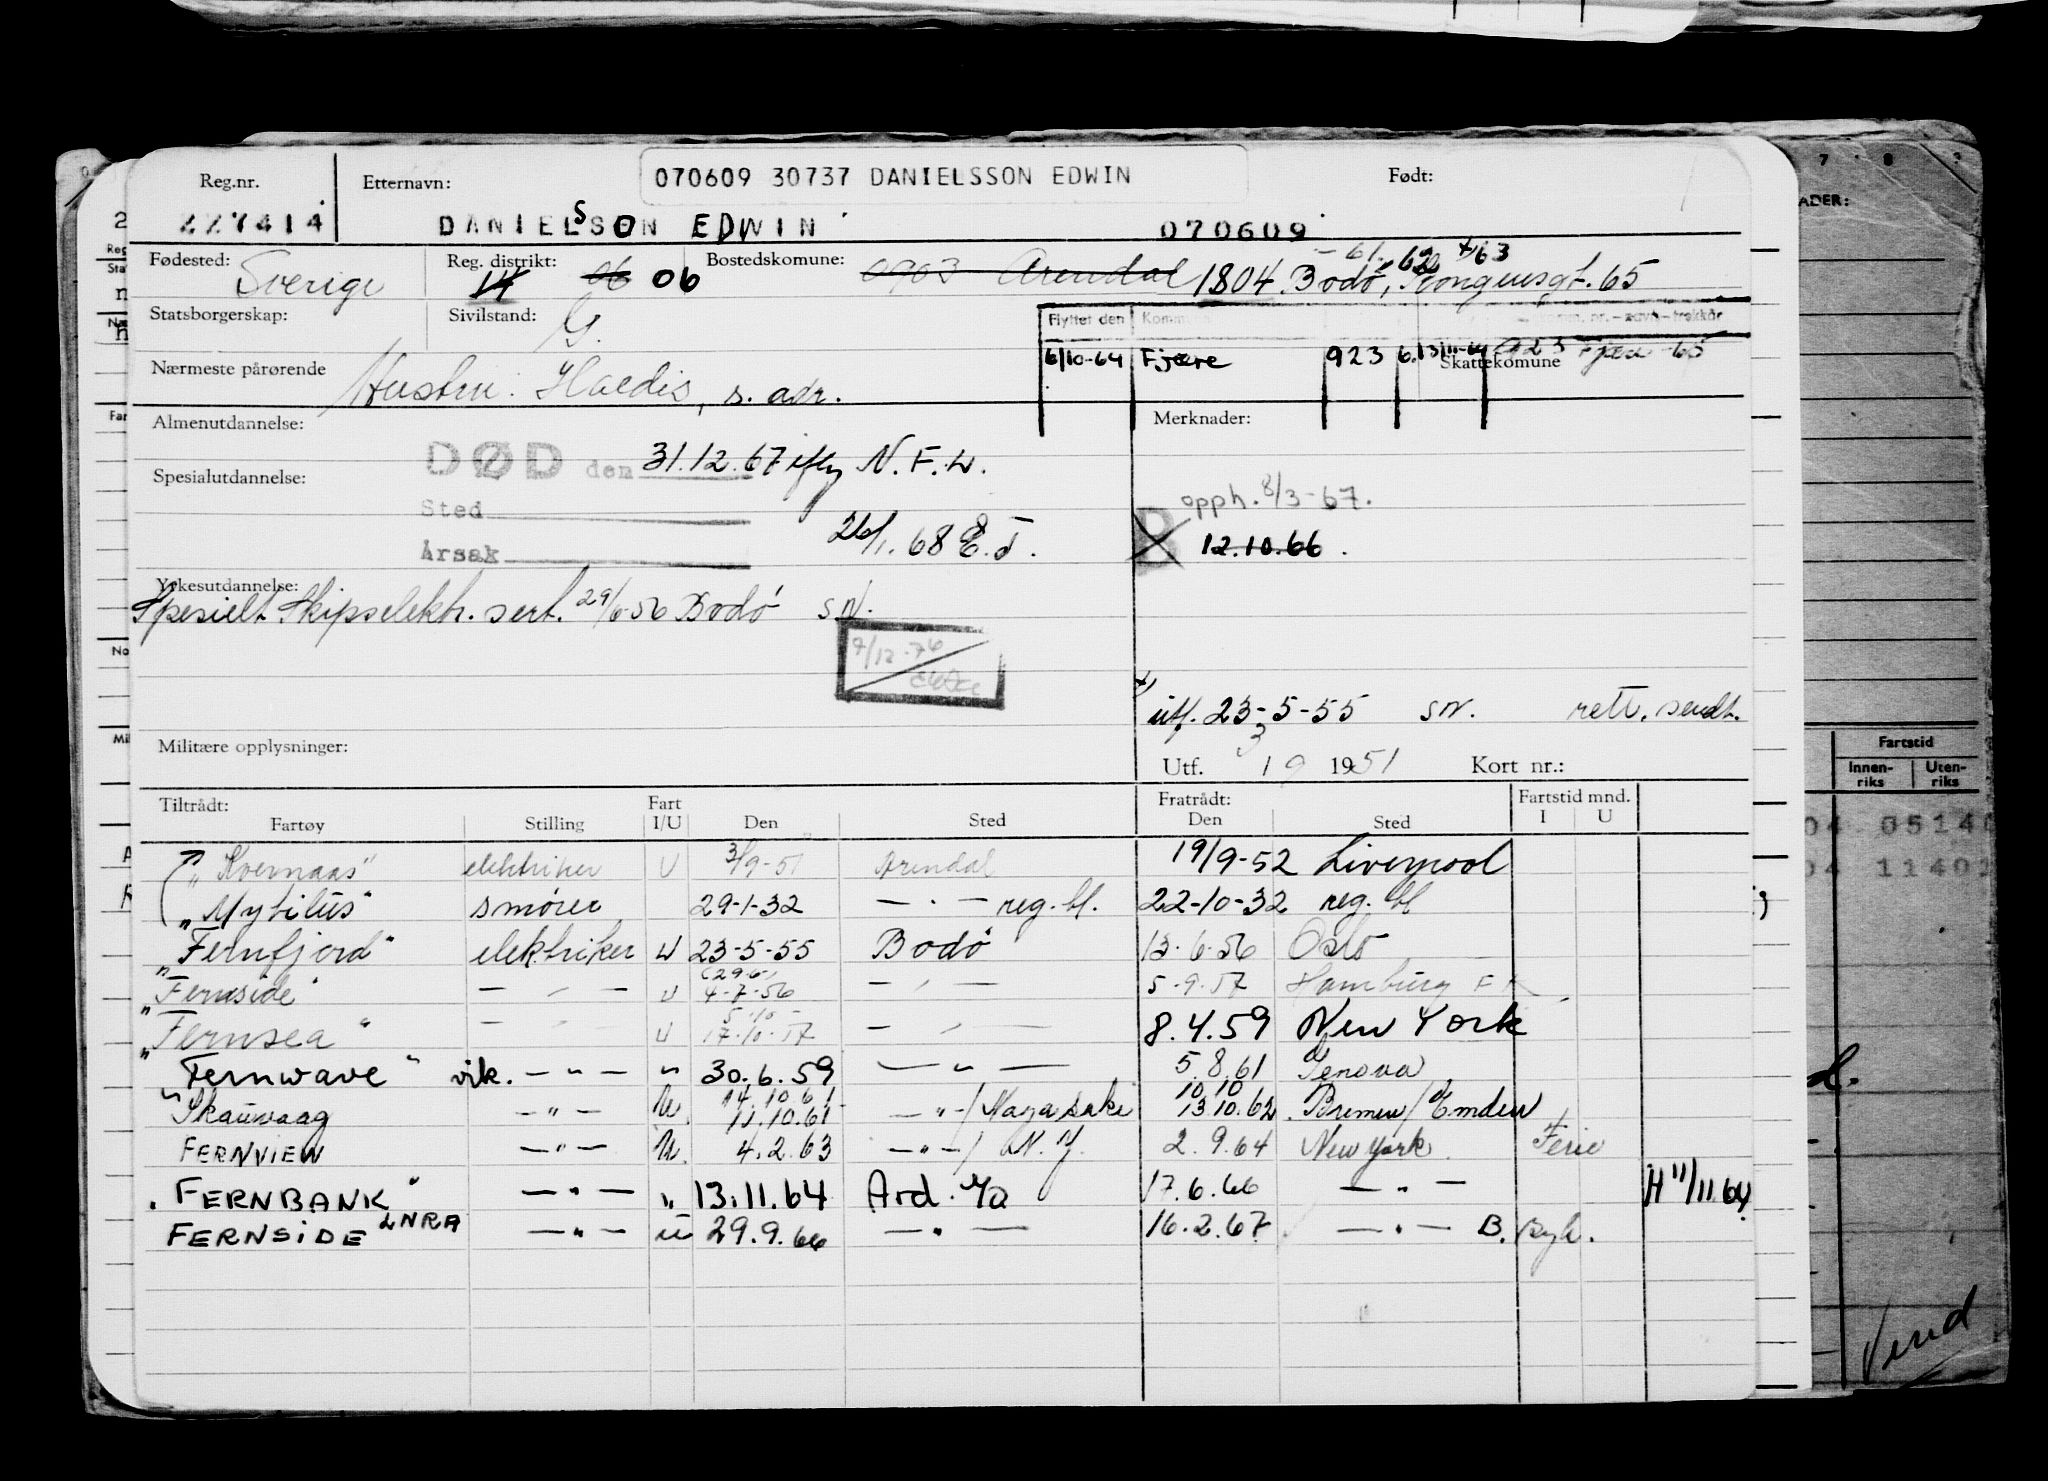 Reg.nr. Etternavn: 070609 30737 DANIELSSON EDWIN Født:
227414 DANIELSSON EDWIN 070609
Fødested: Sverige Reg. distrikt: 14 06 06 Bostedskomune: 0903 Arendal 1804 Bodø, Kongensgt. 65
- 61. 62 + 63
Statsborgerskap: Sivilstand: G.
Flyttet den Kommune
Nærmeste pårørende Hustru: Haldis, s. adr.
6/10-64 Fjære 923 6. 13/11-64 923 Fjære 65
Skattekomune
Almenutdannelse: Merknader:
DØD den 31.12.67 iflg N.F.L.
Spesialutdannelse: opph. 8/3-67.
Sted
26/1.68 E.T. B 12.10.66.
Årsak
Yrkesutdannelse:
Spesielt Skipselektr. sert. 29/6-56 Bodø SN.
9/12-76
utf. 23-5-55 SN. rett. sendt.
Militære opplysninger: Utf. 3 / 9 1951 Kort nr.:
Tiltrådt: Fart Fratrådt: Fartstid mnd.
Fartøy Stilling I/U Den Sted Den Sted I U
"Kvernaas" elektriker U 3/9-51 Arendal 19/9-52 Liverpool
"Mytilus" smører 29-1-32 — . — reg. bl. 22-10-32 reg. bl
"Fernfjord" elektriker U 23-5-55 Bodø 13-6-56 Oslo
(29.6)
"Fernside" — " — U 4-7-56 — " — 5.9.57 Hamburg
5.10 -
"Fernsea" — " — U 17.10.57 — " — 8.4.59 New York
"Fernwave" vik. — " — " 30.6.59 — " — 5.8.61 Genova
14.10.61 10 10
Skauvaag — " — U 11.10.61 — " — / Nagasaki 13.10.62. Bremen / Emden
FERNVIEW — " — U. 4.2.63 — " — / N.Y. 2.9.64 New York. Ferie
"FERNBANK" — " — " 13.11.64 Ard. 17.6.66 — " — H 11/11.64
FERNSIDE LNRA — " — U 29.9.66 — " — 16.2.67 — " — B.
ADER:
Fartstid
Innen-riks Uten-riks
04 0514
04 1140
Vend